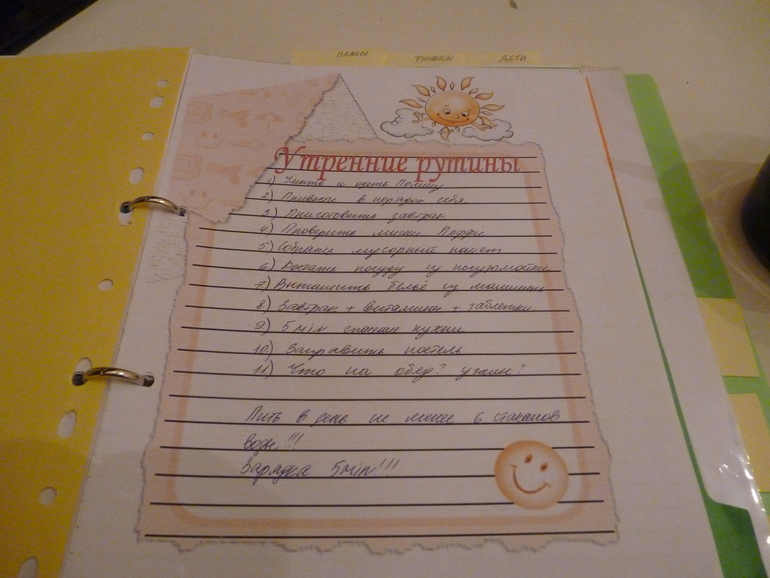 ПЛАНЫ
ФИНАНСЫ
ДЕТИ
Утренние рутины
1) Умыть и одеть Полину
2) Привести в порядок себя
3) Приготовить завтрак
4) Проверить миски Йоффи
5) Собрать мусорный пакет
6) Достать посуду из посудомойки
7) Вытащить бельё из машинки
8) Завтрак + витамины + таблетки
9) 5 міn спасение кухни
10) Заправить постель
11) Что на обед? ужин?
Пить в день не менее 6 стаканов
воды!!!
Зарядка 5 міn!!!